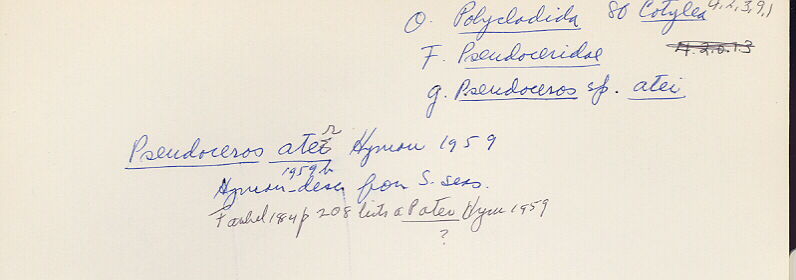 O. Polycladida SO Cotylea 4,2,3,9,1
F. Pseudoceridae 4.2.0.1.3
g. Pseudoceros sp. atei
r
Pseudoceros atet Hyman 1959
1959b
Hyman-desc from S. seas.
184 p 208 lists a P ater Hym 1959
?